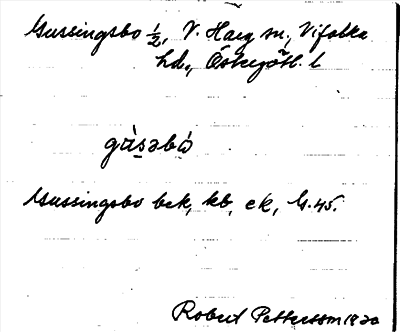 Gussingsbo 1/2, V. Harg sn, Vifolka
hd., Östergötl. l
gùsəbó
Gussingsbo bek, kb, ek, G.45.
Robert Pettersson 1930